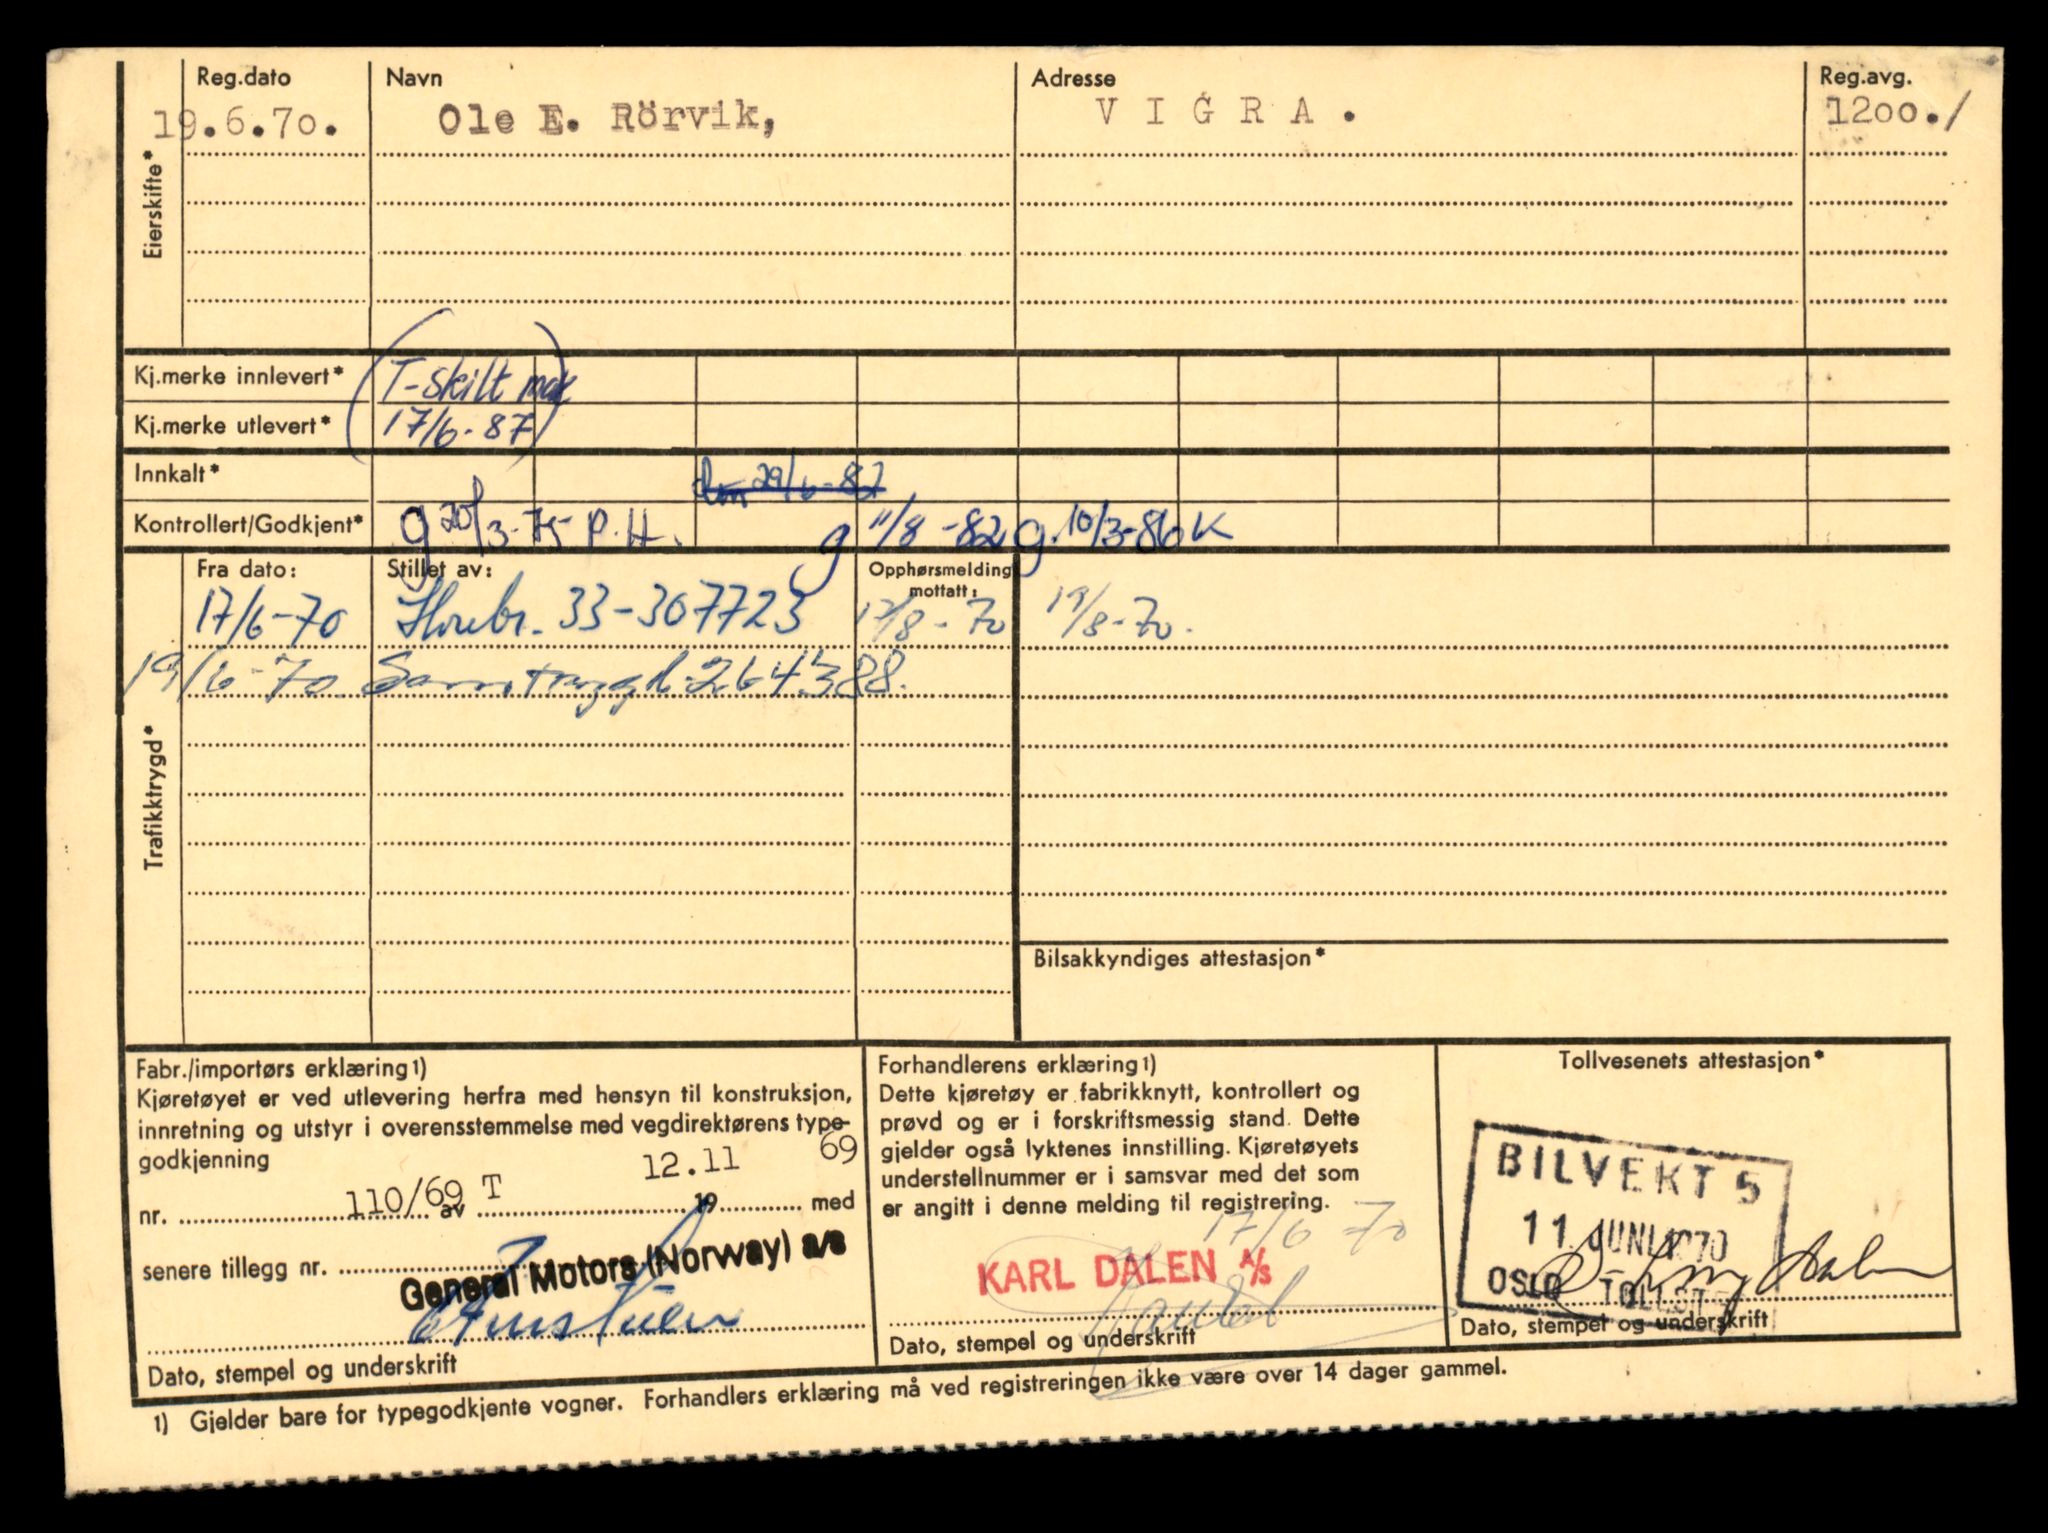 Reg.dato Navn Adresse Reg.avg.
19.6.70. Ole E. Rörvik, VIGRA. 1200./
Eierskifte*
Kj.merke innlevert* (T-skilt mak
Kj.merke utlevert* 17/6-87)
Innkalt* 29/6-87
Kontrollert/Godkjent* g 20/3-75 P.H. g 11/8-82 g. 10/3-86 K
Trafikktrygd*
Fra dato: Stillet av: Opphørsmelding mottatt:
17/6-70 Storebr. 33-307723 17/8-70 19/8-70.
19/6-70 Samtrygd 264388.
Bilsakkyndiges attestasjon*
Fabr./importørs erklæring 1)
Kjøretøyet er ved utlevering herfra med hensyn til konstruksjon,
innretning og utstyr i overensstemmelse med vegdirektørens type-
godkjenning
nr. 110/69 av T 12.11 19 69 med
senere tillegg nr.
General Motors (Norway) a/s
Dato, stempel og underskrift
Forhandlerens erklæring 1)
Dette kjøretøy er fabrikknytt, kontrollert og
prøvd og er i forskriftsmessig stand. Dette
gjelder også lyktenes innstilling. Kjøretøyets
understellnummer er i samsvar med det som
er angitt i denne melding til registrering.
17/6 70
KARL DALEN A/S
Dato, stempel og underskrift
Tollvesenets attestasjon*
BILVEKT 5
11. JUNI 1970
OSLO TOLLST
Dato, stempel og underskrift
1) Gjelder bare for typegodkjente vogner. Forhandlers erklæring må ved registreringen ikke være over 14 dager gammel.